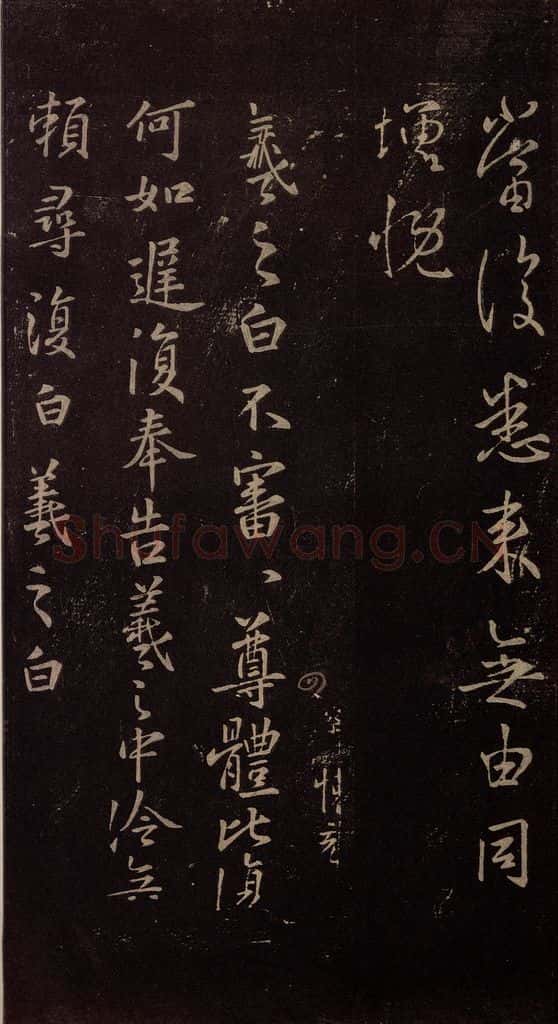 當復悉来無由同
增慨
羲之白不審、尊體比復
何如遲復奉告羲之中冷無
賴尋復白羲之白
Shufawang.CN